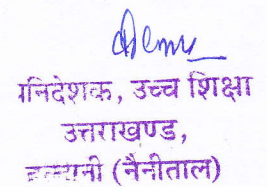 निदेशक, उच्च शिक्षा
उत्तराखण्ड,
(नैनीताल)